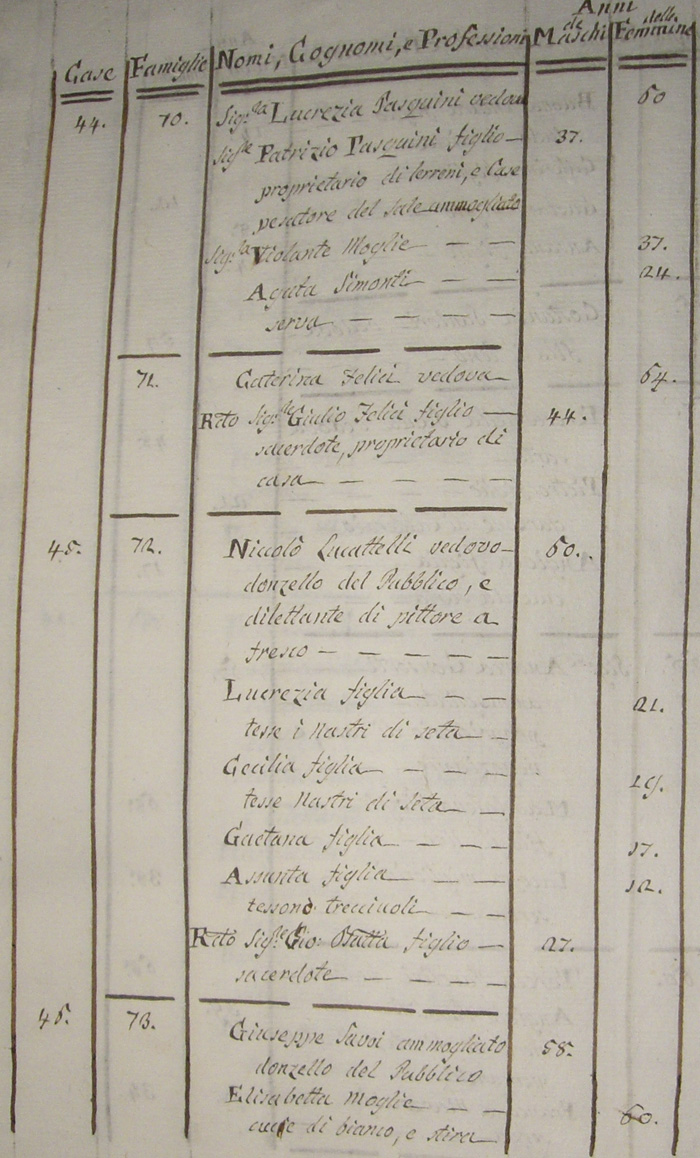 Anni
Case Famiglie Nomi, Cognomi, e Professioni de Maschi delle Femmine
44. 70. Sig.ra Lucrezia Pasquini vedova 60
Sig.re Patrizio Pasquini figlio — 37.
proprietario di terreni, e Case
pesatore del sale ammogliato
Sig.ra Violante Moglie — — 37.
Agata Simonti — — 24.
serva — — — —
71. Caterina Felici vedova — 64.
Rɖto Sig.re Giulio Felici figlio — 44.
sacerdote, proprietario di
casa — — — —
45. 72. Niccolò Lucattelli vedovo — 50.
donzello del Pubblico, e
dilettante di pittore a
fresco — — — —
Lucrezia figlia — — — 21.
tesse i nastri di seta — —
Cecilia figlia — — — 19.
tesse nastri di seta — —
Gaetana figlia — — — 17.
Assunta figlia — — — 12.
tessono trecciuoli — — —
Rɖto Sig.re Gio: Batta figlio — 27.
sacerdote — — — —
46. 73. Giuseppe Savoi ammogliato 58.
donzello del Pubblico
Elisabetta moglie — — 60.
cuce di bianco, e stira —